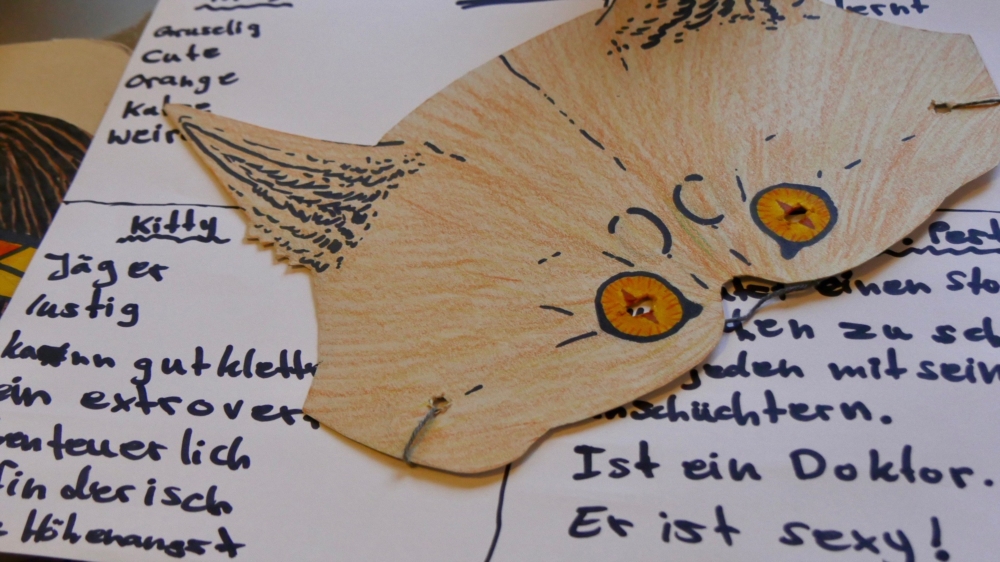 Gruselig
Cute
Orange
weir
lernt
Kitty
Jäger
lustig
kann gut klett
ein extrover
enteuerlich
finderisch
Höhenangst
Pert
einen Sto
hen zu sch
jeden mit sein
nschüchtern.
Ist ein Doktor.
Er ist sexy!